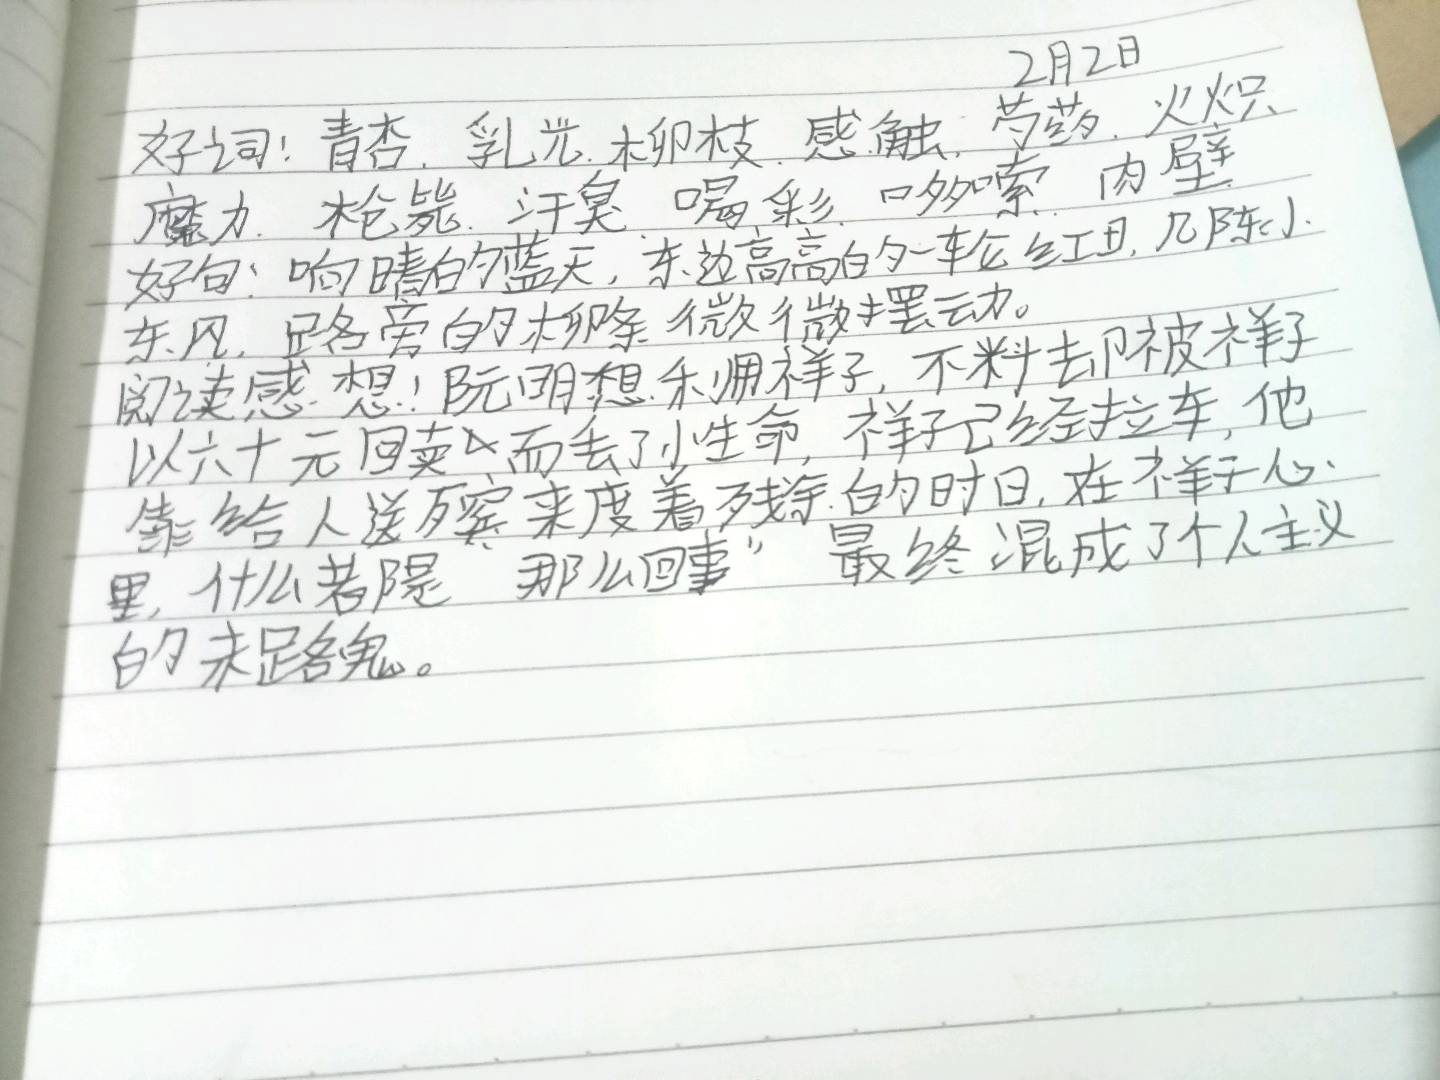 2月2日
好词：青杏．乳光．柳枝．感触．芍药．火炽
魔力．枪毙．汗臭．喝彩．哆嗦．肉壁
好句：响晴的蓝天，东边高高的一轮红日，几阵小
东风，路旁的柳条微微摆动。
阅读感想：阮明想利用祥子，不料却被祥子
以六十元回卖，而丢了小生命，祥子已经拉车，他
靠给人送殡来度着残余的时日，在祥子心
里，什么都是 那么回事” 最终混成了个人主义
的末路鬼。